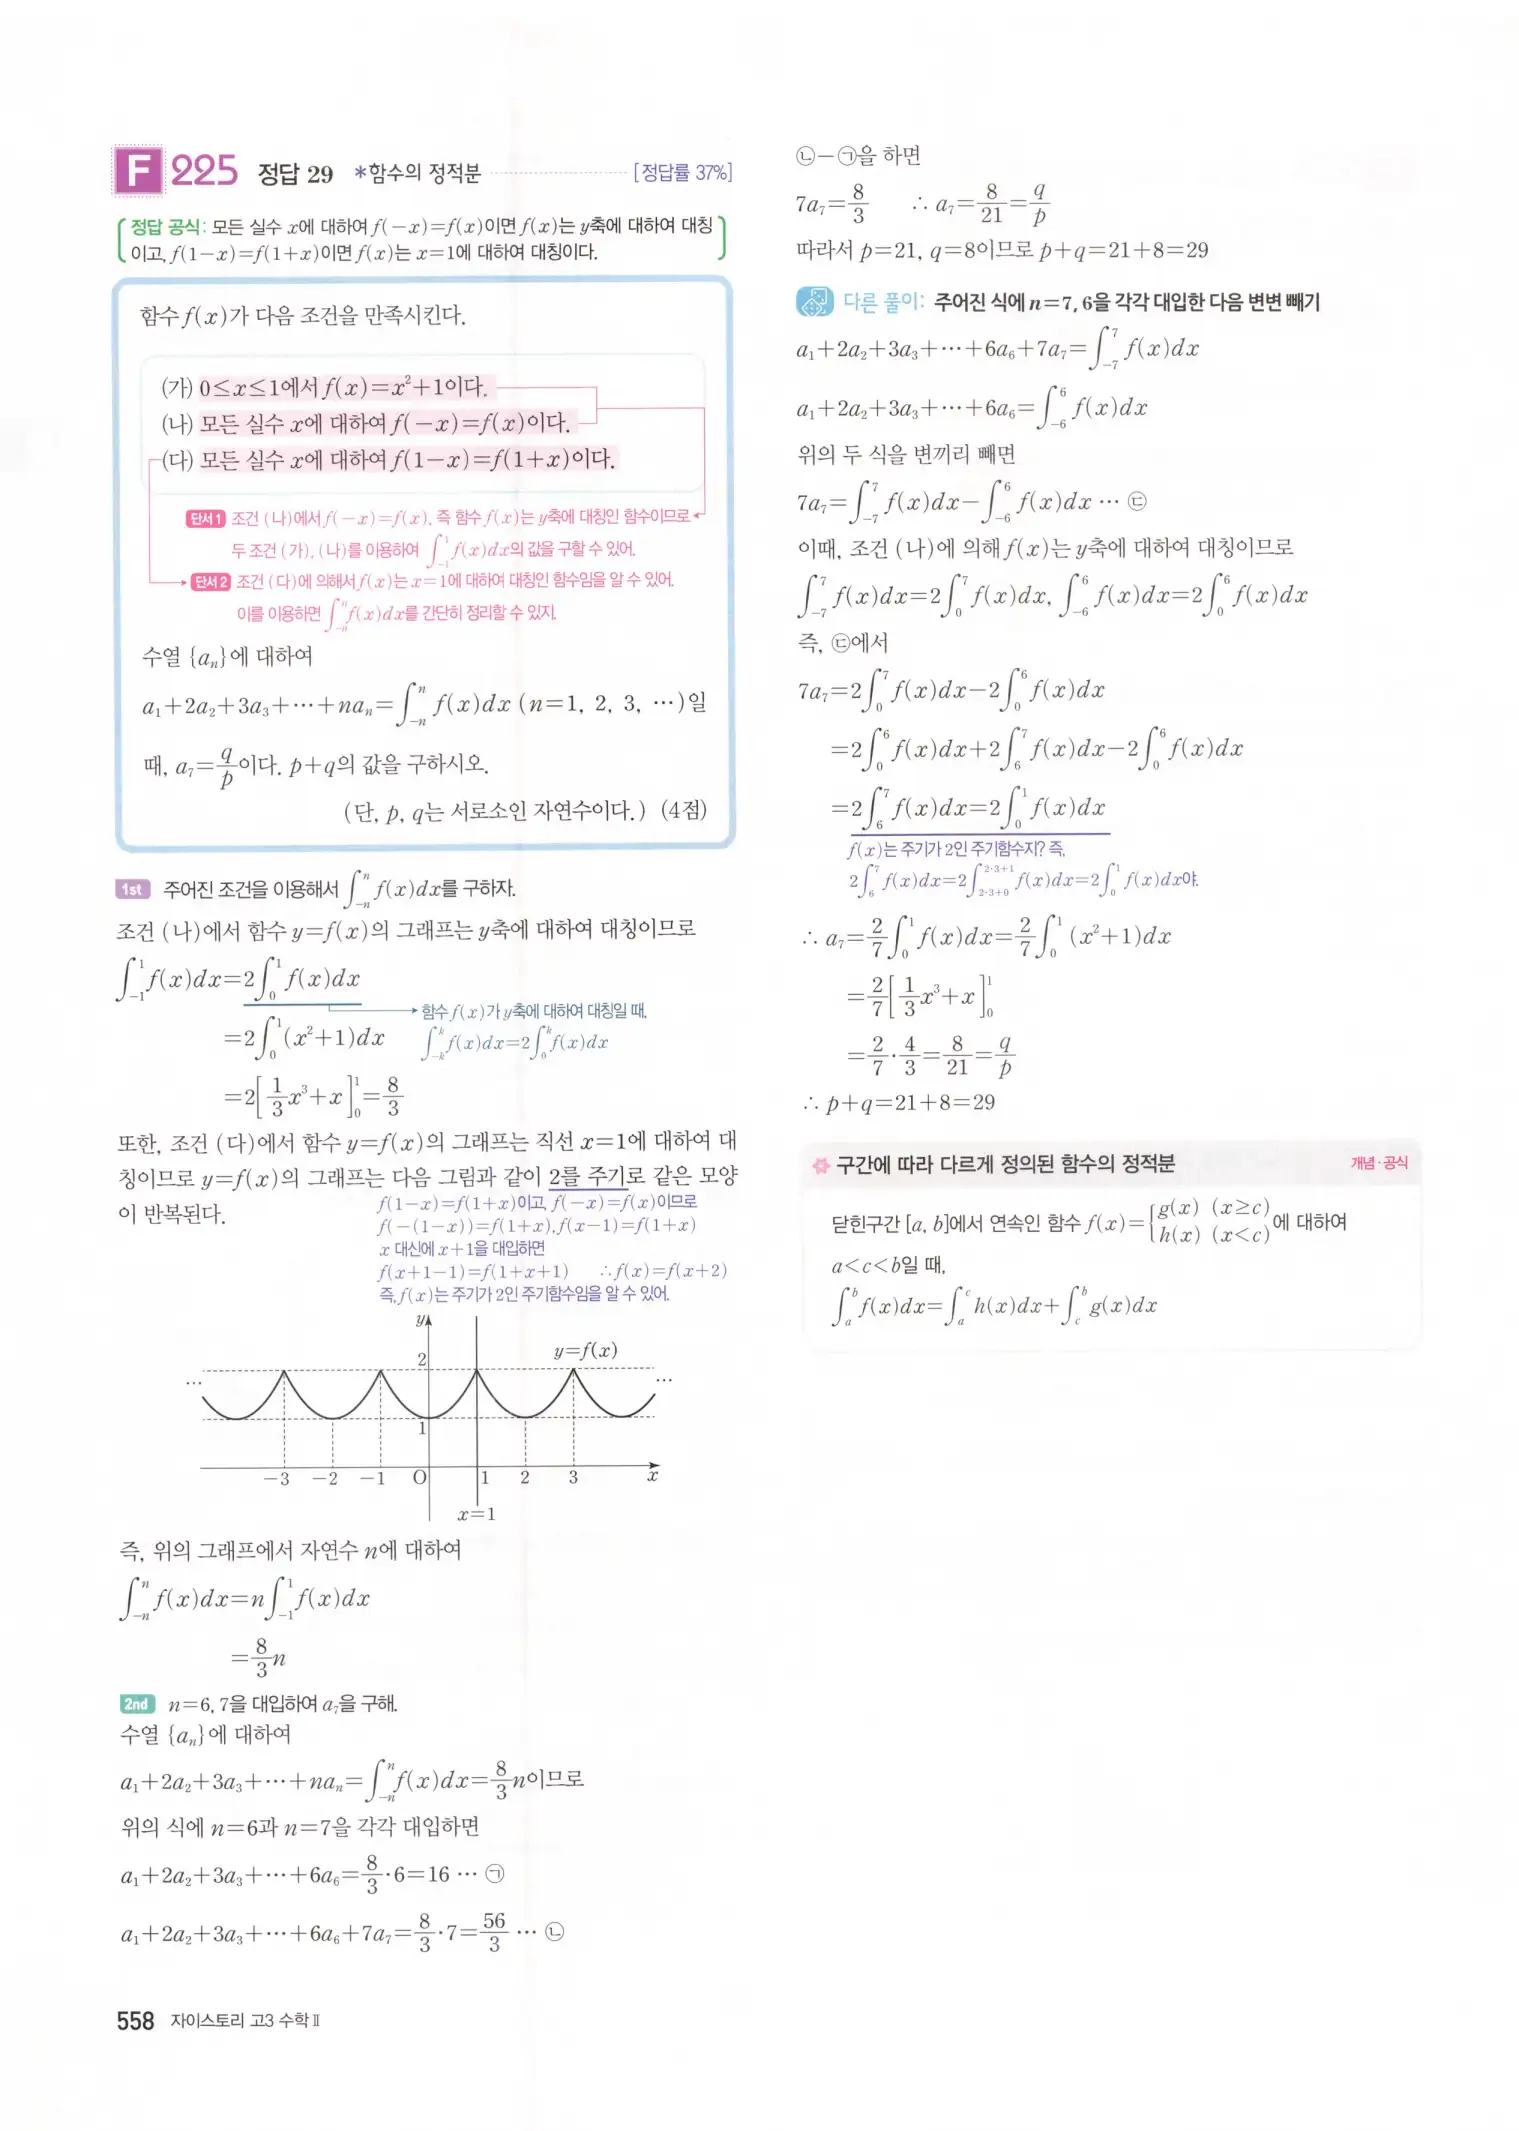 F 225 정답 29 *함수의 정적분 [정답률 37%]
정답 공식: 모든 실수 x에 대하여 f(−x)=f(x)이면 f(x)는 y축에 대하여 대칭
이고, f(1−x)=f(1+x)이면 f(x)는 x=1에 대하여 대칭이다.
함수 f(x)가 다음 조건을 만족시킨다.
(가) 0≤x≤1에서 f(x)=x²+1이다.
(나) 모든 실수 x에 대하여 f(−x)=f(x)이다.
(다) 모든 실수 x에 대하여 f(1−x)=f(1+x)이다.
단서1 조건 (나)에서 f(−x)=f(x), 즉 함수 f(x)는 y축에 대칭인 함수이므로
두 조건 (가), (나)를 이용하여 ∫_{−1}^{1} f(x)dx의 값을 구할 수 있어.
단서2 조건 (다)에 의해서 f(x)는 x=1에 대하여 대칭인 함수임을 알 수 있어.
이를 이용하면 ∫_{−n}^{n} f(x)dx를 간단히 정리할 수 있지.
수열 {aₙ}에 대하여
a₁+2a₂+3a₃+⋯+naₙ=∫_{−n}^{n} f(x)dx (n=1, 2, 3, ⋯)일
때, a₇=q/p이다. p+q의 값을 구하시오.
(단, p, q는 서로소인 자연수이다.) (4점)
1st 주어진 조건을 이용해서 ∫_{−n}^{n} f(x)dx를 구하자.
조건 (나)에서 함수 y=f(x)의 그래프는 y축에 대하여 대칭이므로
∫_{−1}^{1} f(x)dx=2∫_{0}^{1} f(x)dx
함수 f(x)가 y축에 대하여 대칭일 때,
=2∫_{0}^{1} (x²+1)dx
∫_{−k}^{k} f(x)dx=2∫_{0}^{k} f(x)dx
=2[1/3 x³+x]_{0}^{1}=8/3
또한, 조건 (다)에서 함수 y=f(x)의 그래프는 직선 x=1에 대하여 대
칭이므로 y=f(x)의 그래프는 다음 그림과 같이 2를 주기로 같은 모양
이 반복된다.
f(1−x)=f(1+x)이고, f(−x)=f(x)이므로
f(−(1−x))=f(1+x), f(x−1)=f(1+x)
x 대신에 x+1을 대입하면
f(x+1−1)=f(1+x+1) ∴ f(x)=f(x+2)
즉, f(x)는 주기가 2인 주기함수임을 알 수 있어.
y
2 y=f(x)
⋯ ⋯
1
−3 −2 −1 O 1 2 3 x
x=1
즉, 위의 그래프에서 자연수 n에 대하여
∫_{−n}^{n} f(x)dx=n∫_{−1}^{1} f(x)dx
=8/3 n
2nd n=6, 7을 대입하여 a₇을 구해.
수열 {aₙ}에 대하여
a₁+2a₂+3a₃+⋯+naₙ=∫_{−n}^{n} f(x)dx=8/3 n이므로
위의 식에 n=6과 n=7을 각각 대입하면
a₁+2a₂+3a₃+⋯+6a₆=8/3·6=16 ⋯ ㉠
a₁+2a₂+3a₃+⋯+6a₆+7a₇=8/3·7=56/3 ⋯ ㉡
558 자이스토리 고3 수학Ⅱ
㉡−㉠을 하면
7a₇=8/3 ∴ a₇=8/21=q/p
따라서 p=21, q=8이므로 p+q=21+8=29
다른 풀이: 주어진 식에 n=7, 6을 각각 대입한 다음 변변 빼기
a₁+2a₂+3a₃+⋯+6a₆+7a₇=∫_{−7}^{7} f(x)dx
a₁+2a₂+3a₃+⋯+6a₆=∫_{−6}^{6} f(x)dx
위의 두 식을 변끼리 빼면
7a₇=∫_{−7}^{7} f(x)dx−∫_{−6}^{6} f(x)dx ⋯ ㉢
이때, 조건 (나)에 의해 f(x)는 y축에 대하여 대칭이므로
∫_{−7}^{7} f(x)dx=2∫_{0}^{7} f(x)dx, ∫_{−6}^{6} f(x)dx=2∫_{0}^{6} f(x)dx
즉, ㉢에서
7a₇=2∫_{0}^{7} f(x)dx−2∫_{0}^{6} f(x)dx
=2∫_{0}^{6} f(x)dx+2∫_{6}^{7} f(x)dx−2∫_{0}^{6} f(x)dx
=2∫_{6}^{7} f(x)dx=2∫_{0}^{1} f(x)dx
f(x)는 주기가 2인 주기함수지? 즉,
2∫_{6}^{7} f(x)dx=2∫_{2·3+0}^{2·3+1} f(x)dx=2∫_{0}^{1} f(x)dx야.
∴ a₇=2/7∫_{0}^{1} f(x)dx=2/7∫_{0}^{1} (x²+1)dx
=2/7[1/3 x³+x]_{0}^{1}
=2/7·4/3=8/21=q/p
∴ p+q=21+8=29
구간에 따라 다르게 정의된 함수의 정적분 개념·공식
닫힌구간 [a, b]에서 연속인 함수 f(x)={g(x) (x≥c) h(x) (x<c)에 대하여
a<c<b일 때,
∫_{a}^{b} f(x)dx=∫_{a}^{c} h(x)dx+∫_{c}^{b} g(x)dx